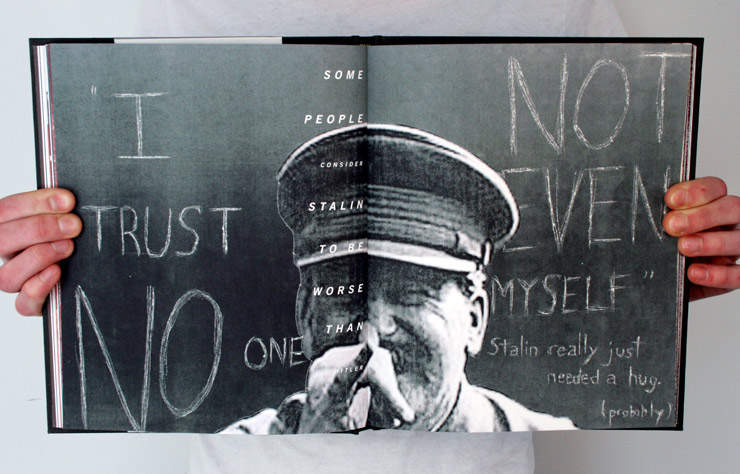 "I
TRUST
NO ONE
SOME
PEOPLE
CONSIDER
STALIN
TO BE
WORSE
THAN
HITLER
NOT
EVEN
MYSELF"
Stalin really just
needed a hug.
(probably)